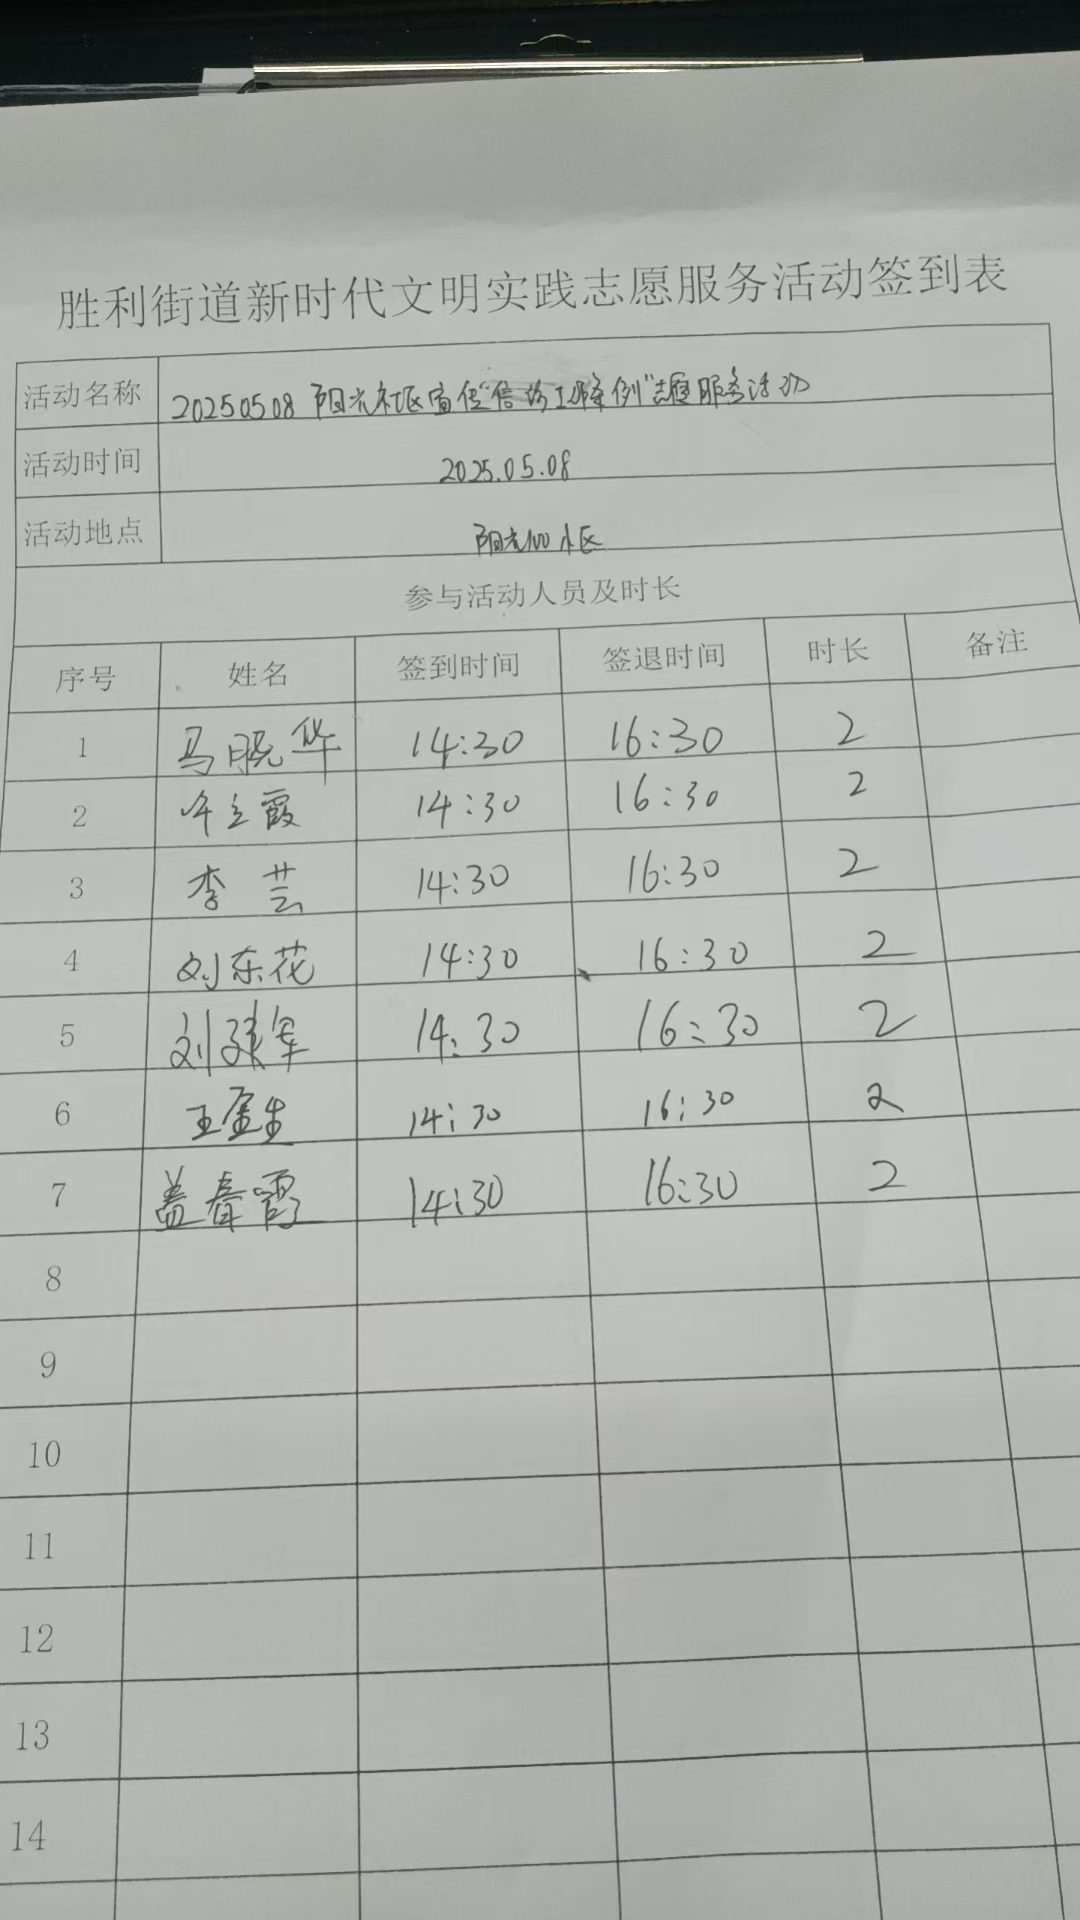 胜利街道新时代文明实践志愿服务活动签到表
活动名称 20250508 阳光社区宣传"信访工作条例"志愿服务活动
活动时间 2025.05.08
活动地点 阳光100小区
参与活动人员及时长
序号 姓名 签到时间 签退时间 时长 备注
1 马晓华 14:30 16:30 2
2 14:30 16:30 2
3 李芸 14:30 16:30 2
4 刘东花 14:30 16:30 2
5 刘 军 14:30 16:30 2
6 王金生 14:30 16:30 2
7 盖春霞 14:30 16:30 2
8
9
10
11
12
13
14